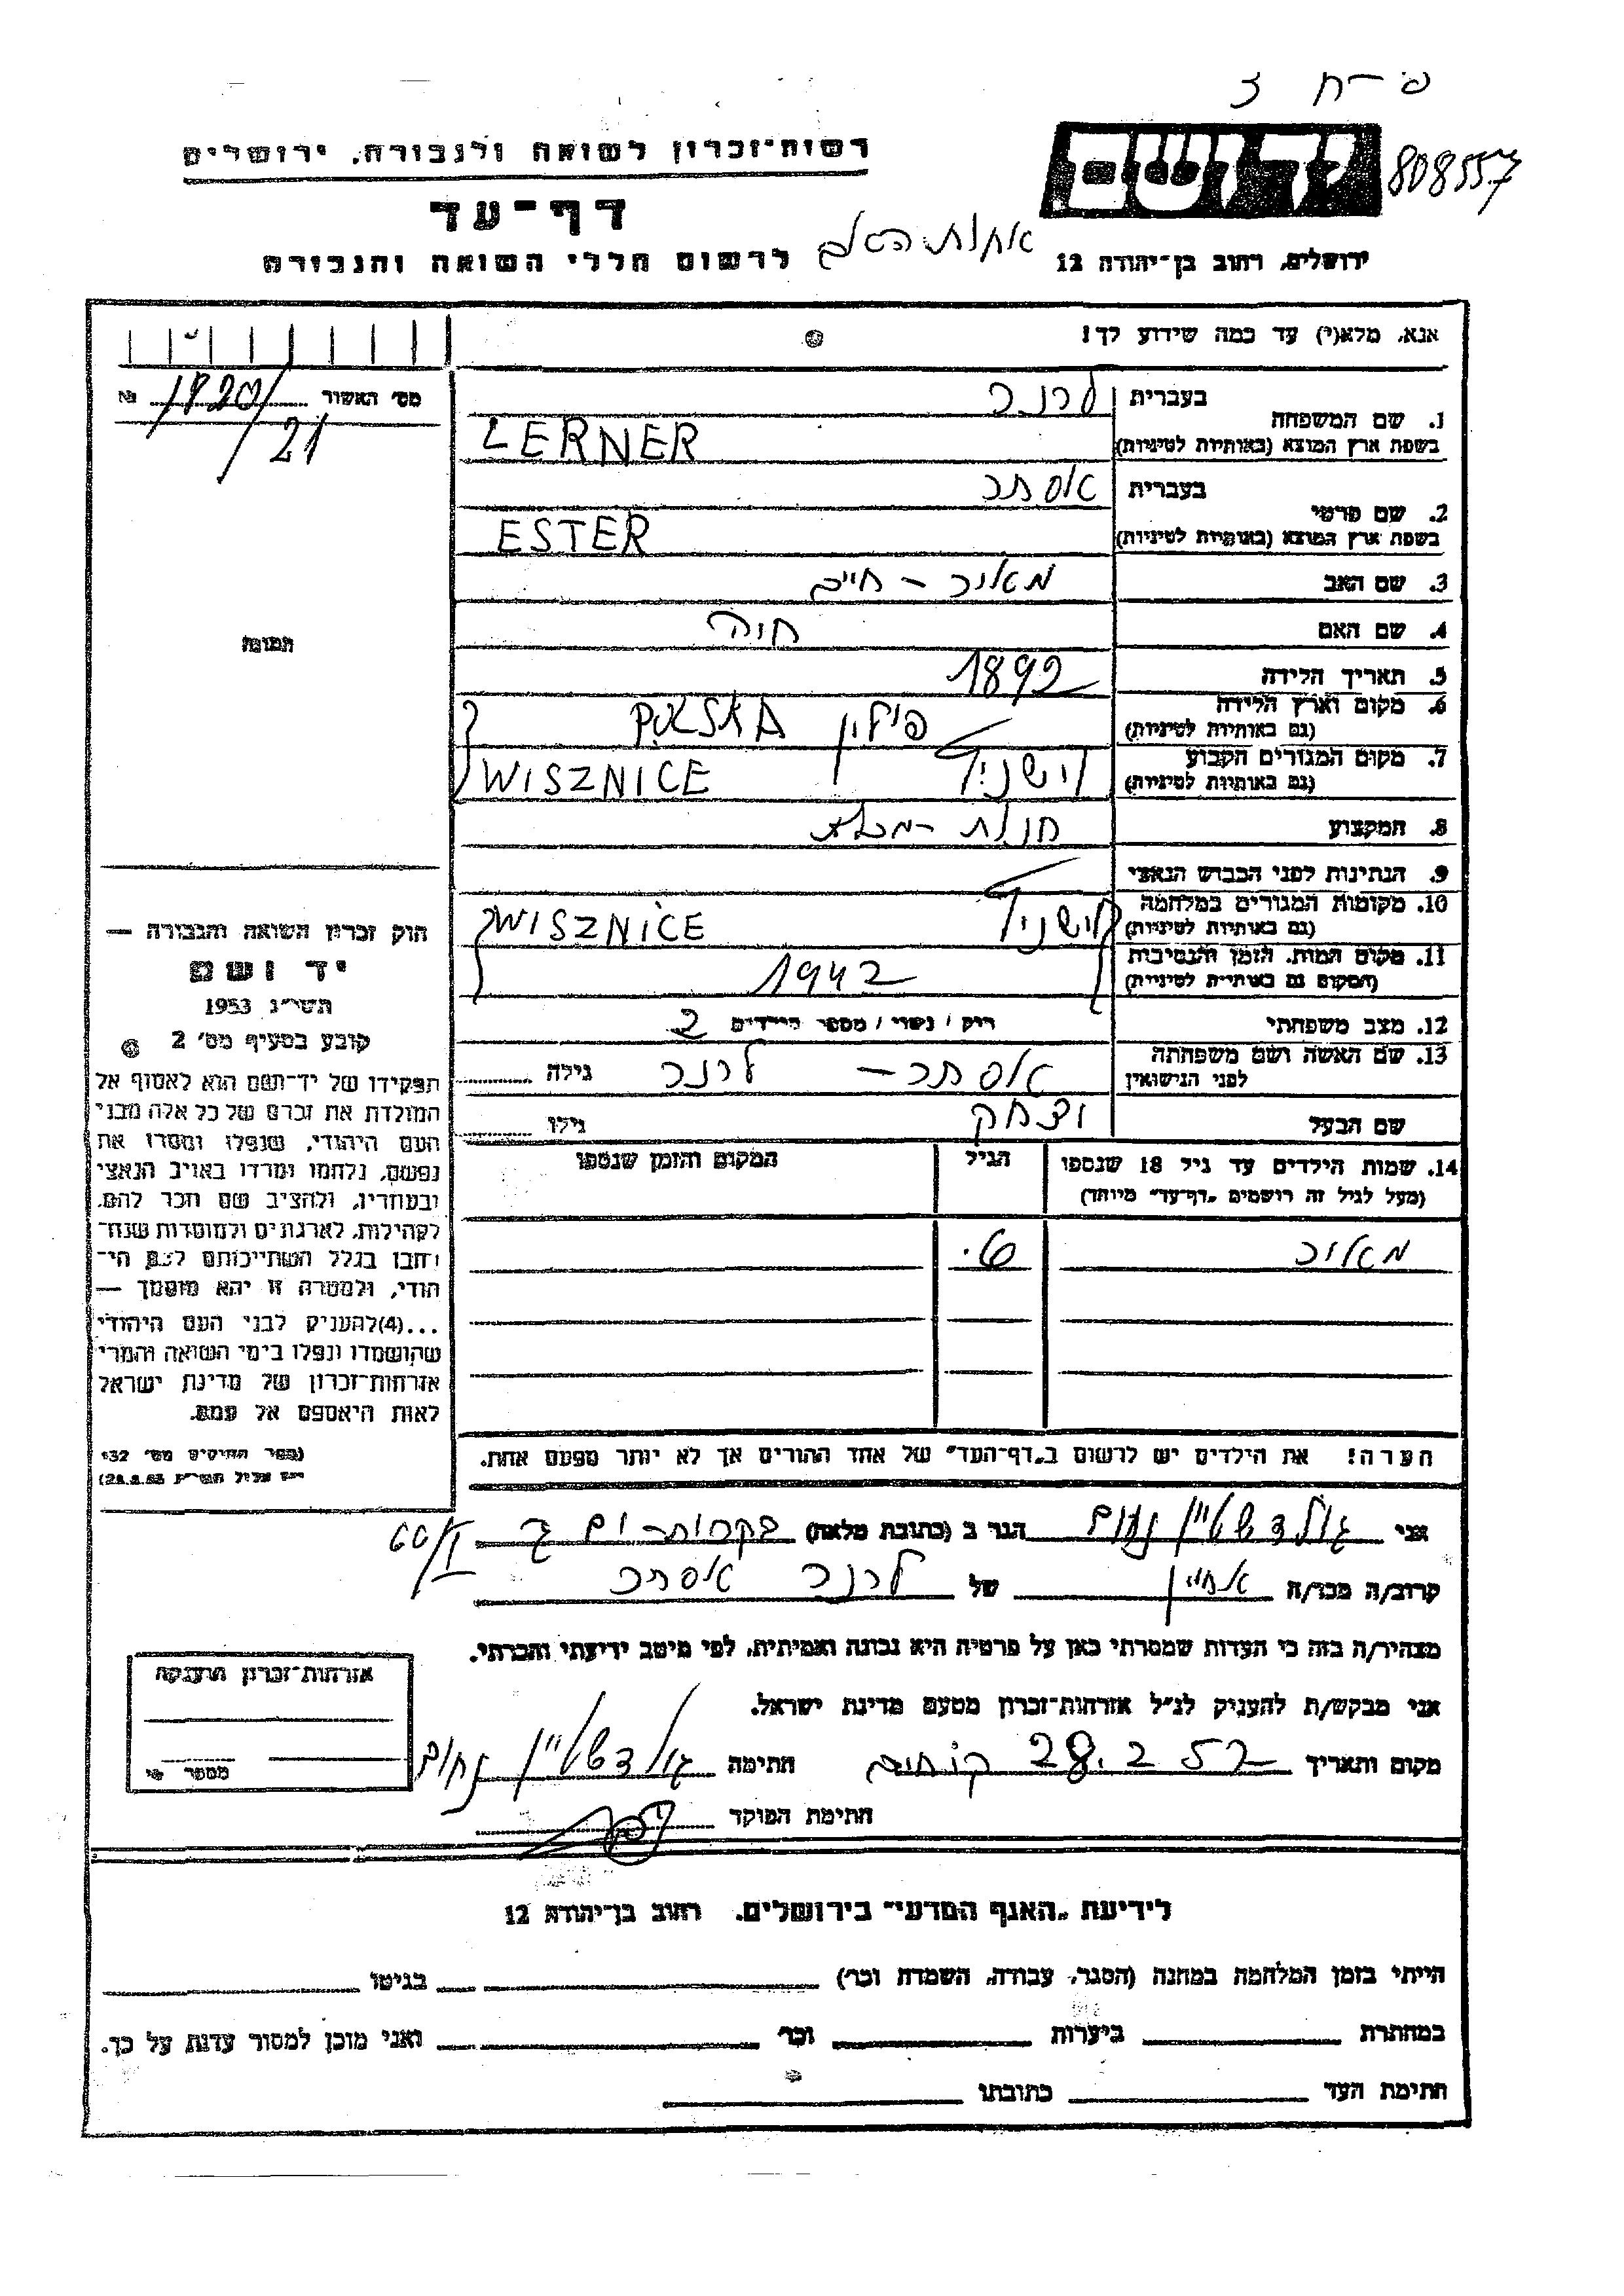 808557
רשות־זכרון לשואה ולגבורה, ירושלים
דף־עד
לרשום חללי השואה והגבורה
ירושלים, רחוב בן־יהודה 12
אנא, מלא(י) עד כמה שידוע לך!
מס׳ האשור 1720/21 №
1. שם המשפחה
בעברית לרנר
בשפת ארץ המוצא (באותיות לטיניות) LERNER
2. שם פרטי
בעברית אסתר
בשפת ארץ המוצא (באותיות לטיניות) ESTER
3. שם האב מאיר - חיים
4. שם האם חיה
תמונה
5. תאריך הלידה 1892
6. מקום וארץ הלידה (גם באותיות לטיניות) פולין POLSKA
7. מקום המגורים הקבוע (גם באותיות לטיניות) WISZNICE
8. המקצוע חנות -מכולת
9. הנתינות לפני הכבוש הנאצי
10. מקומות המגורים במלחמה (גם באותיות לטיניות) WISZNICE
11. מקום המות, הזמן והנסיבות (המקום גם באותיות לטיניות) 1942
12. מצב משפחתי רוק / נשוי / מספר הילדים 2
13. שם האשה ושם משפחתה לפני הנישואין אסתר - לרנר גילה
שם הבעל יצחק גילו
14. שמות הילדים עד גיל 18 שנספו (מעל לגיל זה רושמים „דף־עד״ מיוחד)
הגיל
המקום והזמן שנספו
מאיר
חוק זכרון השואה והגבורה —
יד ושם
תשי״ג 1953
קובע בסעיף מס׳ 2
תפקידו של יד־ושם הוא לאסוף אל
המולדת את זכרם של כל אלה מבני
העם היהודי, שנפלו ומסרו את
נפשם, נלחמו ומרדו באויב הנאצי
ובעוזריו, ולהציב שם וזכר להם,
לקהילות, לארגונים ולמוסדות שנח־
רבו בגלל השתייכותם לעם הי־
הודי, ולמטרה זו יהא מוסמך —
...(4)להעניק לבני העם היהודי
שהושמדו ונפלו בימי השואה והמרי
אזרחות־זכרון של מדינת ישראל
לאות היאספם אל עמם.
הערה! את הילדים יש לרשום ב„דף־העד״ של אחד ההורים אך לא יותר מפעם אחת.
אני גולדשטיין נחום הגר ב (כתובת מלאה)
קרוב/ה מכר/ה אחיין של לרנר אסתר
מצהיר/ה בזה כי העדות שמסרתי כאן על פרטיה היא נכונה ואמיתית, לפי מיטב ידיעתי והכרתי.
אני מבקש/ת להעניק לנ״ל אזרחות־זכרון מטעם מדינת ישראל.
מקום ותאריך חתימה גולדשטיין נחום
חתימת הפוקד
אזרחות־זכרון הוענקה
לידיעת „האגף המדעי״ בירושלים, רחוב בן־יהודה 12
הייתי בזמן המלחמה במחנה (הסגר, עבודה, השמדה וכר׳) בגיטו
במחתרת ביערות וכר׳ ואני מוכן למסור עדות על כך.
חתימת העד כתובתו